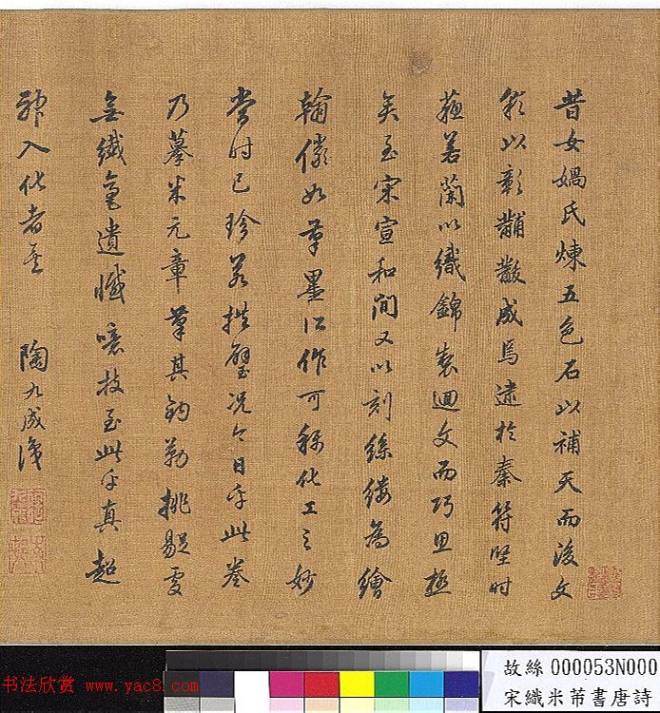 昔女媧氏煉五色石以補天而後文
彩以彰黼黻成焉逮於秦苻堅時
蘇若蘭以織錦製迴文而巧思極
矣至宋宣和間又以刻絲縷為繪
翰儼如筆墨所作可稱化工之妙
當時已珍若拱璧況今日乎此卷
乃摹米元章筆其鉤勒挑剔處
無纖毫遺憾噫技至此乎真超
神入化者矣 陶九成識
故絲 000053N000
宋織米芾書唐詩
书法欣赏 www.yac8.com